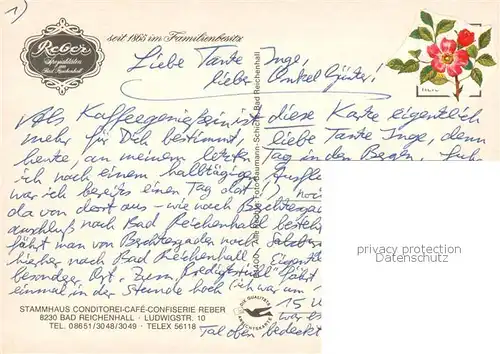 1)
Reber
Spezialitäten
Bad Reichenhall
seit 1865 im Familienbesitz
Liebe Tante Inge,
lieber Onkel Günter!
Als Kaffeegenießerin ist diese Karte eigentlich
mehr für Dich bestimmt, liebe Tante Inge, denn
heute, an meinem letzten Tag in den Bergen - fuhr
ich nach einem halbtägigen Ausflug
war ich bereits einen Tag dort),
da von dort aus - wie nach Berchtesgaden
anschluß nach Bad Reichenhall besteht
fährt man von Berchtesgaden nach
hieher nach Bad Reichenhall.
besonderer Ort. Zum "Predigtstuhl" fährt
einmal in der Stunde hoch (ich war um
15
war es
Tal oben bedeckt
STAMMHAUS CONDITOREI-CAFÉ-CONFISERIE REBER
8230 BAD REICHENHALL · LUDWIGSTR. 10
TEL. 08651/3048/3049 · TELEX 56118
Alle Rechte Foto-Baumann-Schicht Bad Reichenhall
DIE QUALITÄTS
ANSICHTSKARTE
privacy protection
Datenschutz